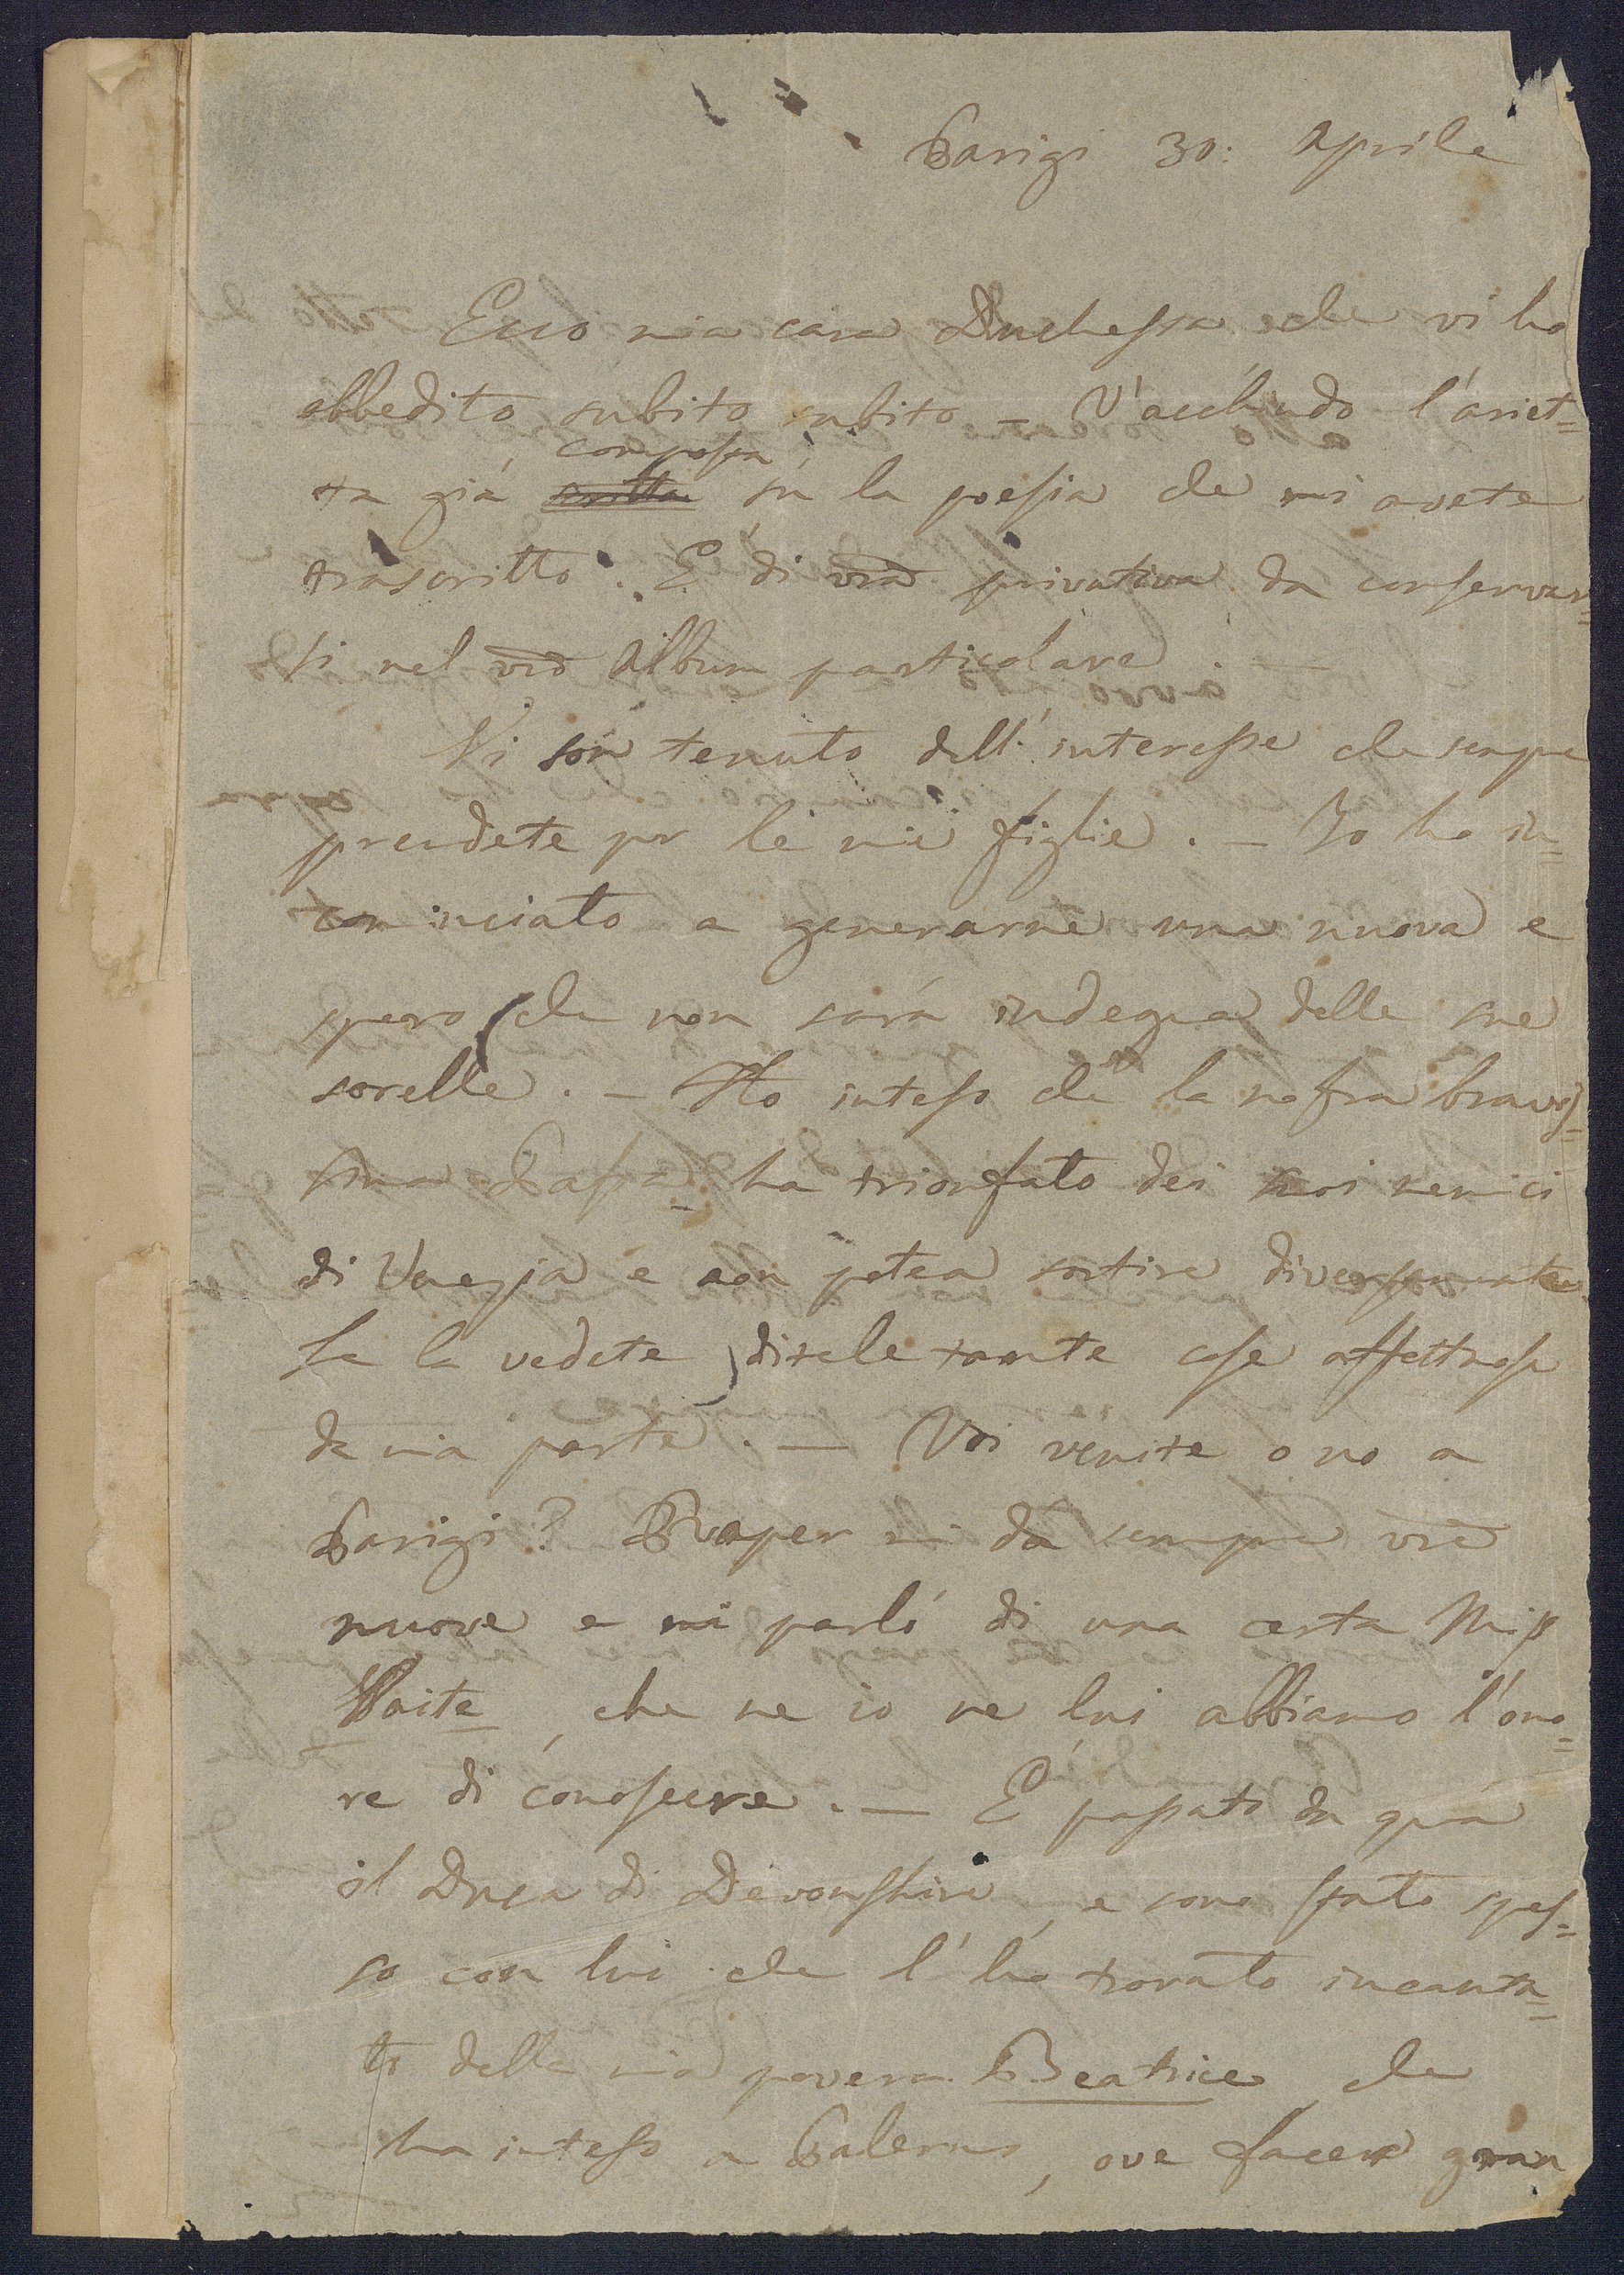 Parigi 30: Aprile
Ecco mia cara Duchessa che vi ho
obbedito subito subito – V'acchiudo l'ariet=
composta
ta già scritta su la poesia che mi avete
trascritto. È di vra privativa da conservar=
si nel vro Album particolare. —
Vi son tenuto dell'interesse che sempre
prendete per le mie figlie. – Io ho in=
cominciato a generarne una nuova e
spero che non sarà indegna delle sue
sorelle. – Ho inteso che la nostra bravis=
sima Pasta ha trionfato dei suoi nemici
di Venezia e non potea sortire diversamente
Se la vedete, ditele tante cose affettuose
da mia parte. — Voi venite o no a
Parigi? Raper mi dà sempre vre
nuove e mi parló di una certa Miss
Waite, che ne io ne lui abbiamo l'ono=
re di conoscere. — É passato da quà
il Duca di Devonshire, e sono stato spes=
so con lui che l'ho trovato incanta=
to della mia povera Beatrice che
ha inteso a Palermo, ove facea gran